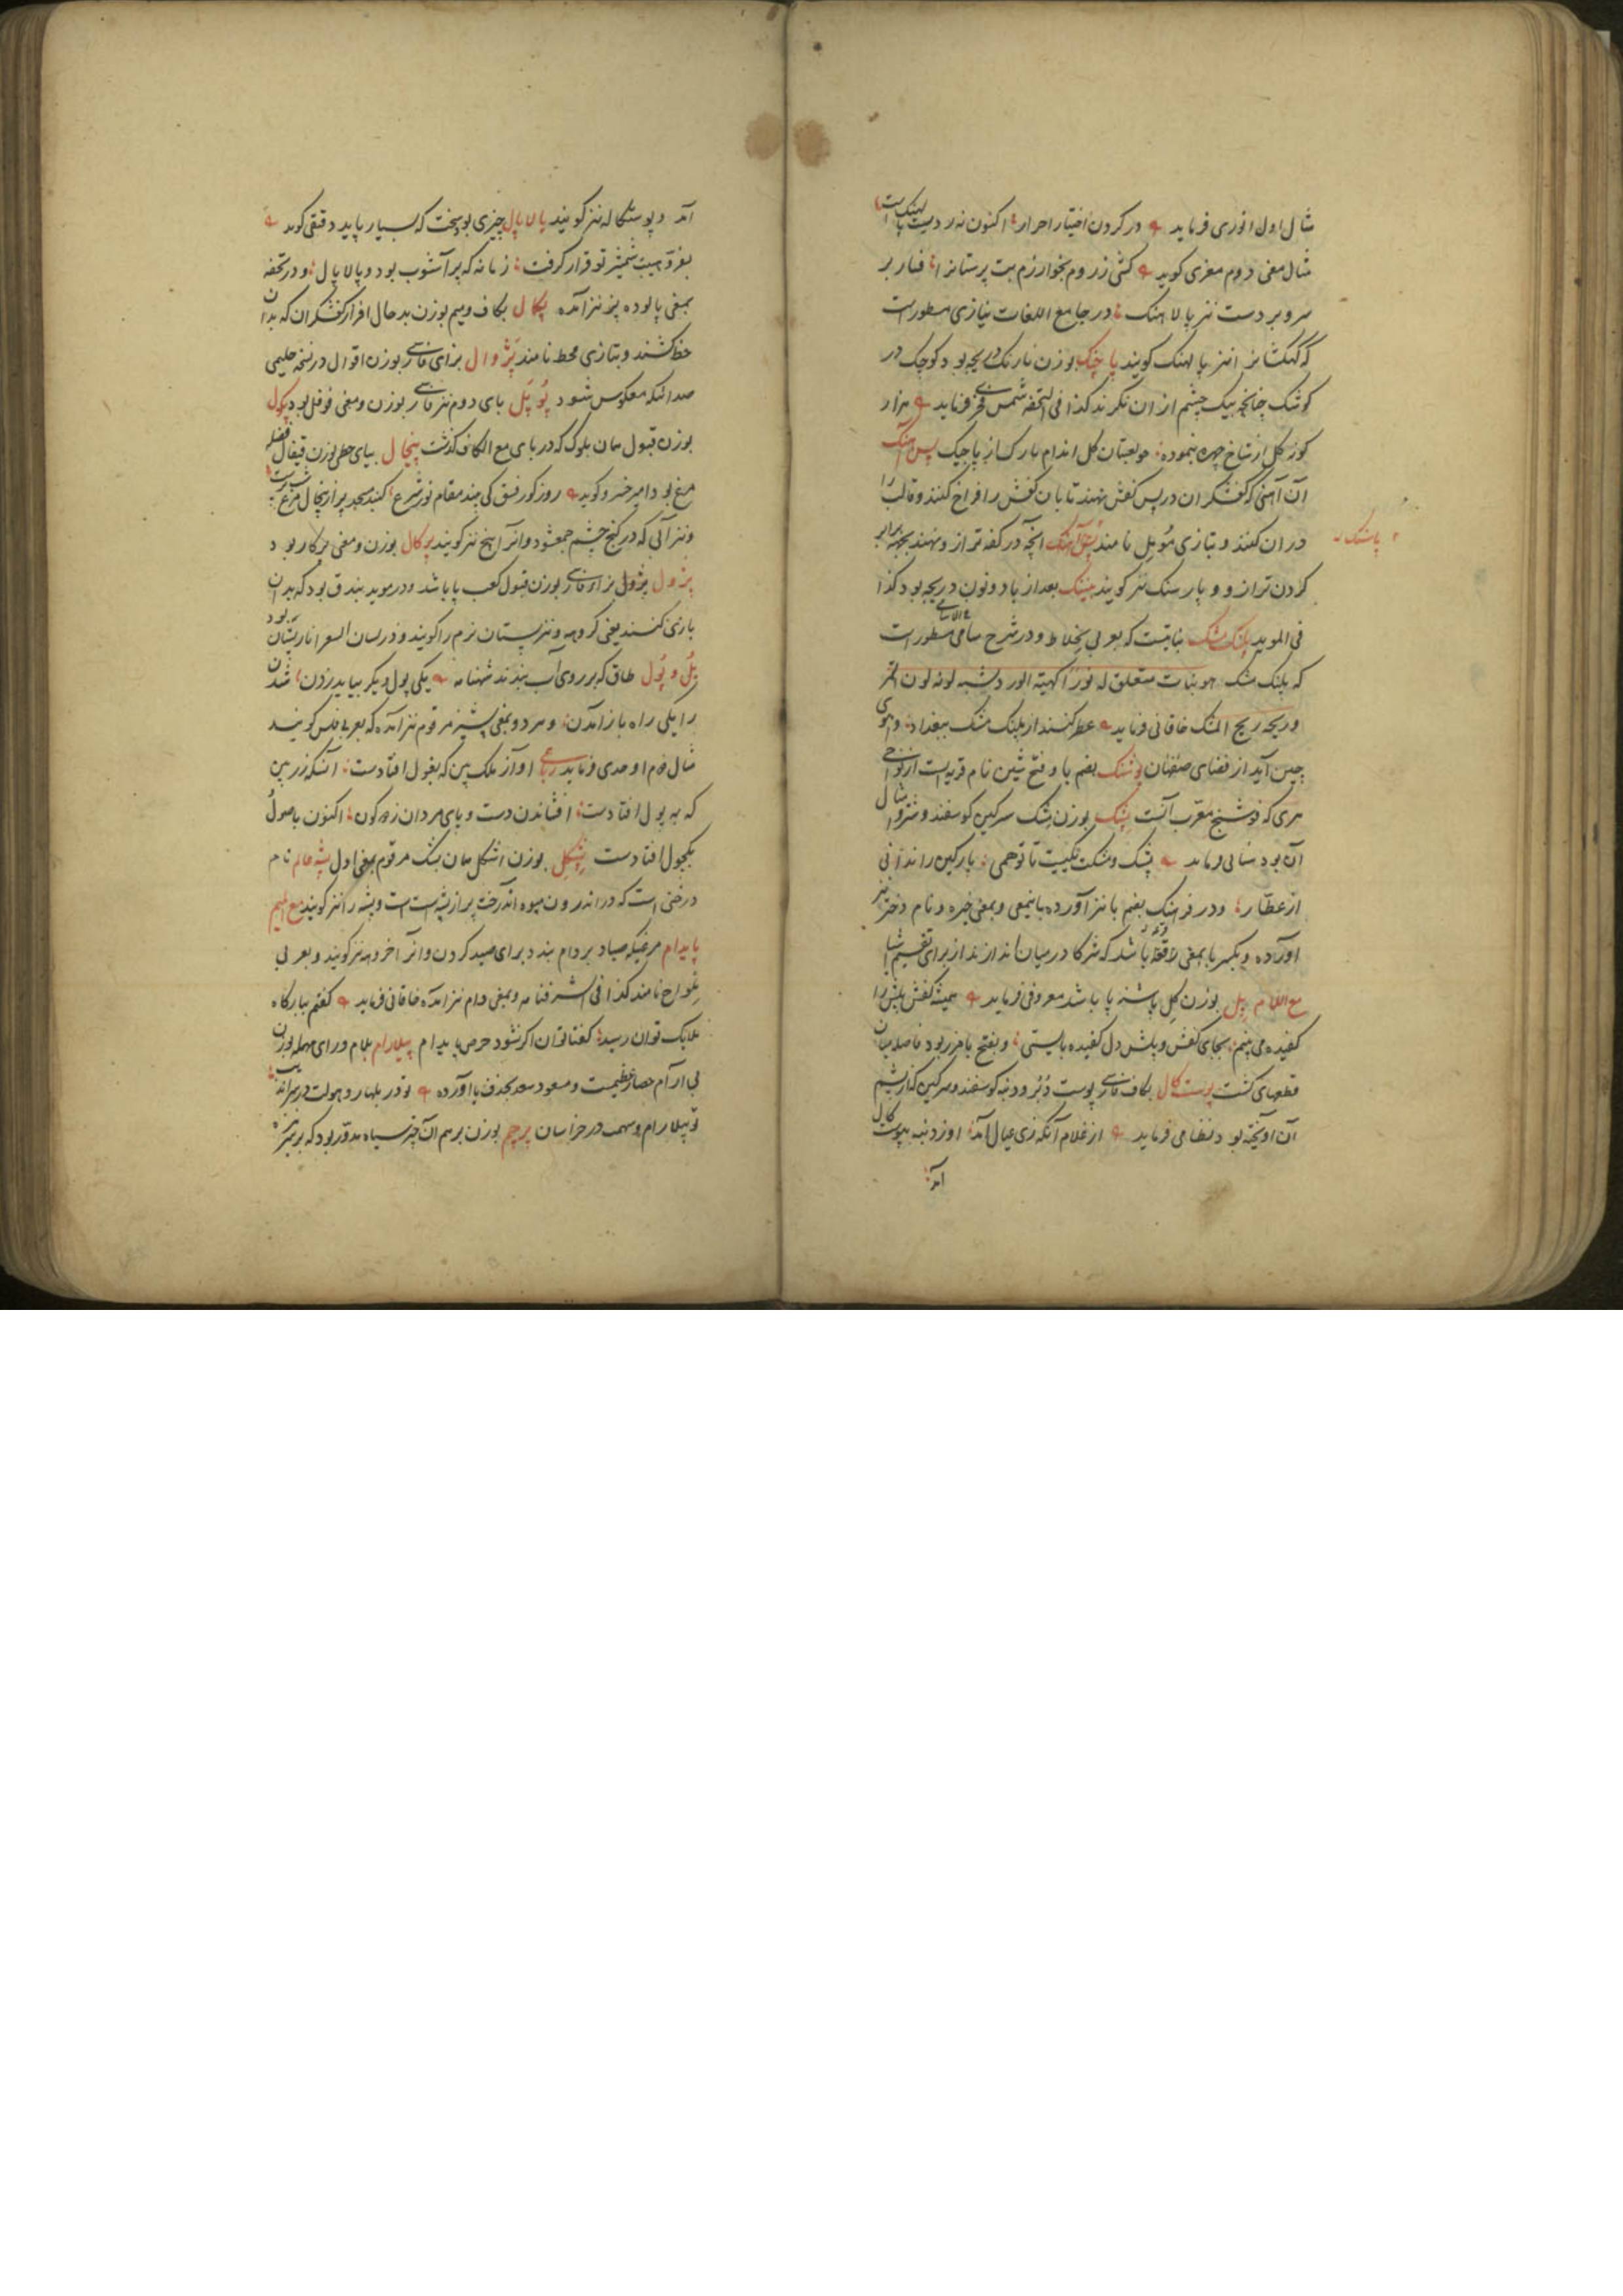 مثال اول انوری فرماید در کردن اختیار احرار اکنون نه ردیست پالهنکست
مثال معنی دوم معزی کوید کشتی ز روم بخوارزم بت پرستانرا فسار بر
سر و بر دست نیز پالاهنک و در جامع اللغات نیازی مسطورست
که کهکشانرا نیز پالهنک کویند پاچنک بوزن نارنک دریچه بود کوچک در
کوشک چنانچه بیک چشم از ان نکرند کذا فی التحفه شمس فخری فرماید هزار
کوزکل از شاخ چهره بنموده چو لعبتان کل اندام بارکساز پاچنک پس آهنک
آن آهنی که کفشکران در پس کفش نهند تا بان کفش را فراخ کنند و قالب را
در ان کنند و بتازی موبل نامند پاسنک انچه در کفه ترازو نهند بجهة برابر
پاسنک
کردن ترازو و پارسنک نیز کویند پنینک بعد از یا دو نون دریچه بود کذا
فی الموید پلنک مشک نباتیست که بعربی خلاط و در شرح سامی مسطورست
که پلنک مشک هو نبات متعلق له نور اکهیئة الورد یشبه لونه لون النمر
و ریحه ریح المسک خاقانی فرماید عطر کنند از پلنک مشک ببغداد و آهوی
چین آید از فضای صفاهان پوشنک بضم با و فتح شین نام قریه است از نواحی
هری که فوشنج معرب آنست پشک بوزن مشک سرکین کوسفند و شتر و مثال
آن بود سنائی فرماید پشک و مشکت یکیست تا توهمی پارکین را ندانی
از عطار و در فرهنک بضم با نیز آورده باینمعنی و بمعنی جره و نام دختر نیز
آورده و بکسر با بمعنی قرعه باشد که شرکا در میان اندازند از برای تقسیم اشیا
مع اللام پل بوزن کل پاشنه پا باشد معروفی فرماید همیشه کفش و پلش را
کفیده می بینم بجای کفش و پلش دل کفیده بایستی و بفتح با مرز بود فاصله میان
قطعهای کشت پوست کال بکاف فارسی پوست دبر و دنبه کوسفند و سرکین که از پشم
آن آویخته بود نظامی فرماید از غلام آنکه زی عیال آمد او ز دنبه بپوست کال
آمد
آمد و پوستکاله نیز کویند پالاپال چیزی بود سخت که بسیار پاید دقیقی کوید
بفر و هیبت شمشیر تو قرار کرفت زمانه که پر آشوب بود و پالاپال و در تحفه
بمعنی پالوده پز نیز آمده پکمال بکاف و میم بوزن بدحال افزار کفشکران که بدان
خط کشند و بتازی محط نامند پژوال بزای فارسی بوزن اقوال در نسخه حلیمی
صدا که معکوس شود پوپل بای دوم نیز فارسی بوزن و معنی فوفل بود پکول
بوزن قبول همان بلوک که در بای مع الکاف کذشت پیخال بیای حطی بوزن قیفال فضله
مرغ بود امیر خسرو کوید روز کور فسق کی بیند مقام نور شرع کنبد مسجد پر از پیخال مرغ
و نیز آبی که در کنج چشم جمع شود و انرا پیخ نیز کویند پرکال بوزن و معنی پرکار بود
پژول پژول بزای فارسی بوزن قبول کعب پا باشد و در موید بندق بود که بدان
بازی کنند یعنی کروهه و نیز پستان نرم را کویند و در لسان الشعرا نار پستان بود
پل و پول طاقی که بر روی آب بندند شهنامه یکی پول دیکر بباید زدن شدن
را یکی راه باز آمدن و هر دو بمعنی پشیز مرقوم نیز آمده که بعربی فلس کویند
مثال دوم اوحدی فرماید رباعی آواز ملک بین که بغول افتادست آنسکه زر بین
که به پول افتادست افشاندن دست و پای مردان زده کون اکنون باصول
کچول افتادست پشکل بوزن اشکل همان پشک مرقوم بمعنی اول پشه خانه نام
درختی است که در اندرون میوه آندرخت پر از پشه است و پشه را نیز کویند مع المیم
پایدام مرغیکه صیاد بر دام بندد برای صید کردن و انرا خروهه نیز کویند و بعربی
ملواح نامند کذا فی الشرفنامه و بمعنی دام نیز آمده خاقانی فرماید کفتم ببارکاه
ملایک توان رسید کفتا توان اکر نشود حرص پایدام پیلارام بلام و رای مهمله بوزن
بی ارام حصار عظیمست و مسعود سعد بحذف یا آورده
تو پیلارام و سهمت در خراسان پرچم بوزن برهم آن چیز سیاه مدور بود که بر سر نیزه